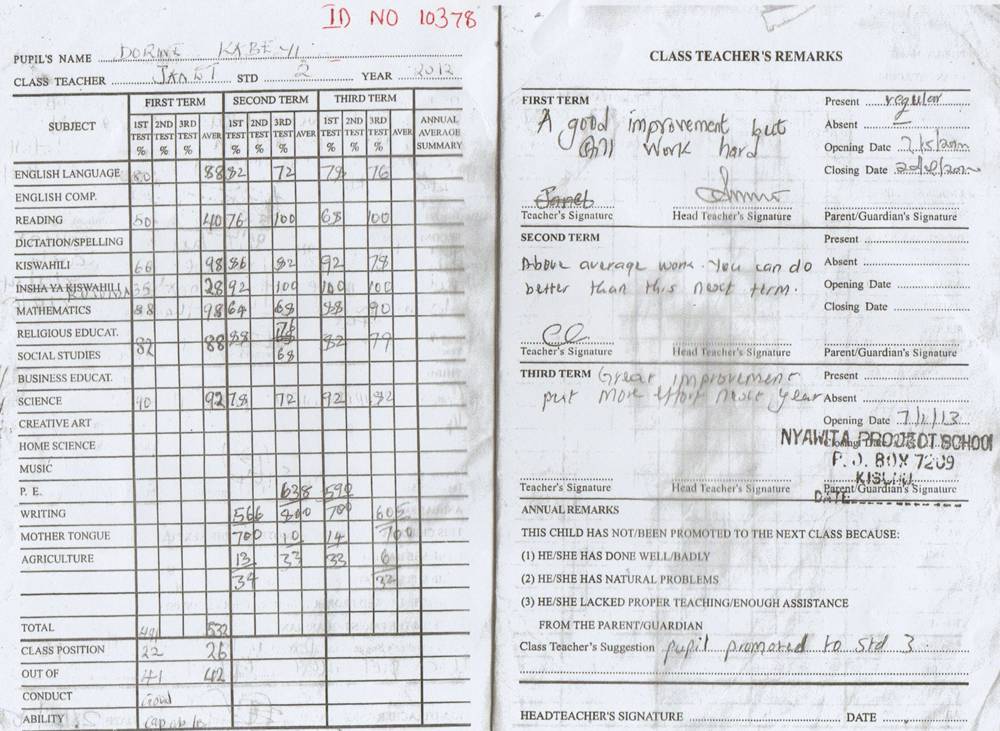 ID NO 10378
PUPIL'S NAME DORINE KABEYI
CLASS TEACHER JANET STD 2 YEAR 2012
SUBJECT FIRST TERM SECOND TERM THIRD TERM ANNUAL AVERAGE SUMMARY
1ST TEST % 2ND TEST % 3RD TEST % AVER 1ST TEST % 2ND TEST % 3RD TEST % AVER 1ST TEST % 2ND TEST % 3RD TEST % AVER
ENGLISH LANGUAGE 80 88 82 72 78 76
ENGLISH COMP.
READING 50 40 76 100 68 100
DICTATION/SPELLING
KISWAHILI 66 98 86 82 92 78
INSHA YA KISWAHILI 35 28 92 100 100 100
MATHEMATICS 88 98 64 68 88 90
RELIGIOUS EDUCAT. 82 88 88 78 82 79
SOCIAL STUDIES 68
BUSINESS EDUCAT.
SCIENCE 40 92 78 72 92 82
CREATIVE ART
HOME SCIENCE
MUSIC
P. E. 638 590
WRITING 566 800 700 605
MOTHER TONGUE 700 10 14 700
AGRICULTURE 13 33 33 6
34 32
TOTAL 491 532
CLASS POSITION 22 26
OUT OF 41 42
CONDUCT Good
ABILITY Capable
CLASS TEACHER'S REMARKS
FIRST TERM
A good improvement but
still work hard
Present regular
Absent
Opening Date
Closing Date
Janet
Teacher's Signature Head Teacher's Signature Parent/Guardian's Signature
SECOND TERM
Above average work. You can do
better than this next term.
Present
Absent
Opening Date
Closing Date
Teacher's Signature Head Teacher's Signature Parent/Guardian's Signature
THIRD TERM Great improvement
put more effort next year
Present
Absent
Opening Date 7/1/13
Closing Date
NYAWITA PROJECT SCHOOL
P. O. BOX 7209
KISUMU
DATE
Teacher's Signature Head Teacher's Signature Parent/Guardian's Signature
ANNUAL REMARKS
THIS CHILD HAS NOT/BEEN PROMOTED TO THE NEXT CLASS BECAUSE:
(1) HE/SHE HAS DONE WELL/BADLY
(2) HE/SHE HAS NATURAL PROBLEMS
(3) HE/SHE LACKED PROPER TEACHING/ENOUGH ASSISTANCE
FROM THE PARENT/GUARDIAN
Class Teacher's Suggestion pupil promoted to std 3
HEADTEACHER'S SIGNATURE DATE